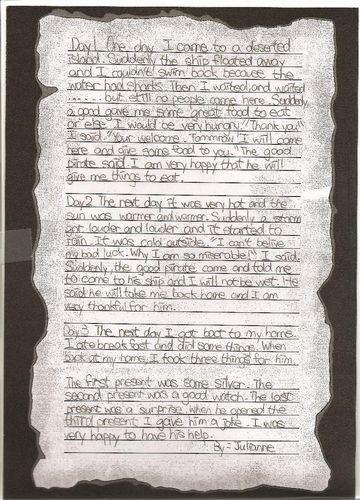 Day 1 One day I came to a deserted
island. Suddenly the ship floated away
and I couldn't swim back because the
water had sharks. Then I waited and waited
...... but still no people came here. Suddenly
a good gave me some great food to eat
or else I would be very hungry. "Thank you"
I said. "Your welcome. Tommrow I will come
here and give some food to you." The good
pirate said. I am very happy that he will
give me things to eat.
Day 2 The next day it was very hot and the
sun was warmer and warmer. Suddenly a storm
got louder and louder and it started to
rain. It was cold outside. "I can't belive
my bad luck. Why I am so miserable!" I said.
Suddenly the good pirate came and told me
to come to his ship and I will not be wet. He
said he will take me back home and I am
very thankful for him.
Day 3 The next day I got bact to my home.
I ate breakfast and did some things. When
back at my home, I took three things for him.
The first present was some silver. The
second present was a good watch. The last
present was a surprise. When he opened the
third present I gave him a joke. I was
very happy to have his help.
By = Julianne